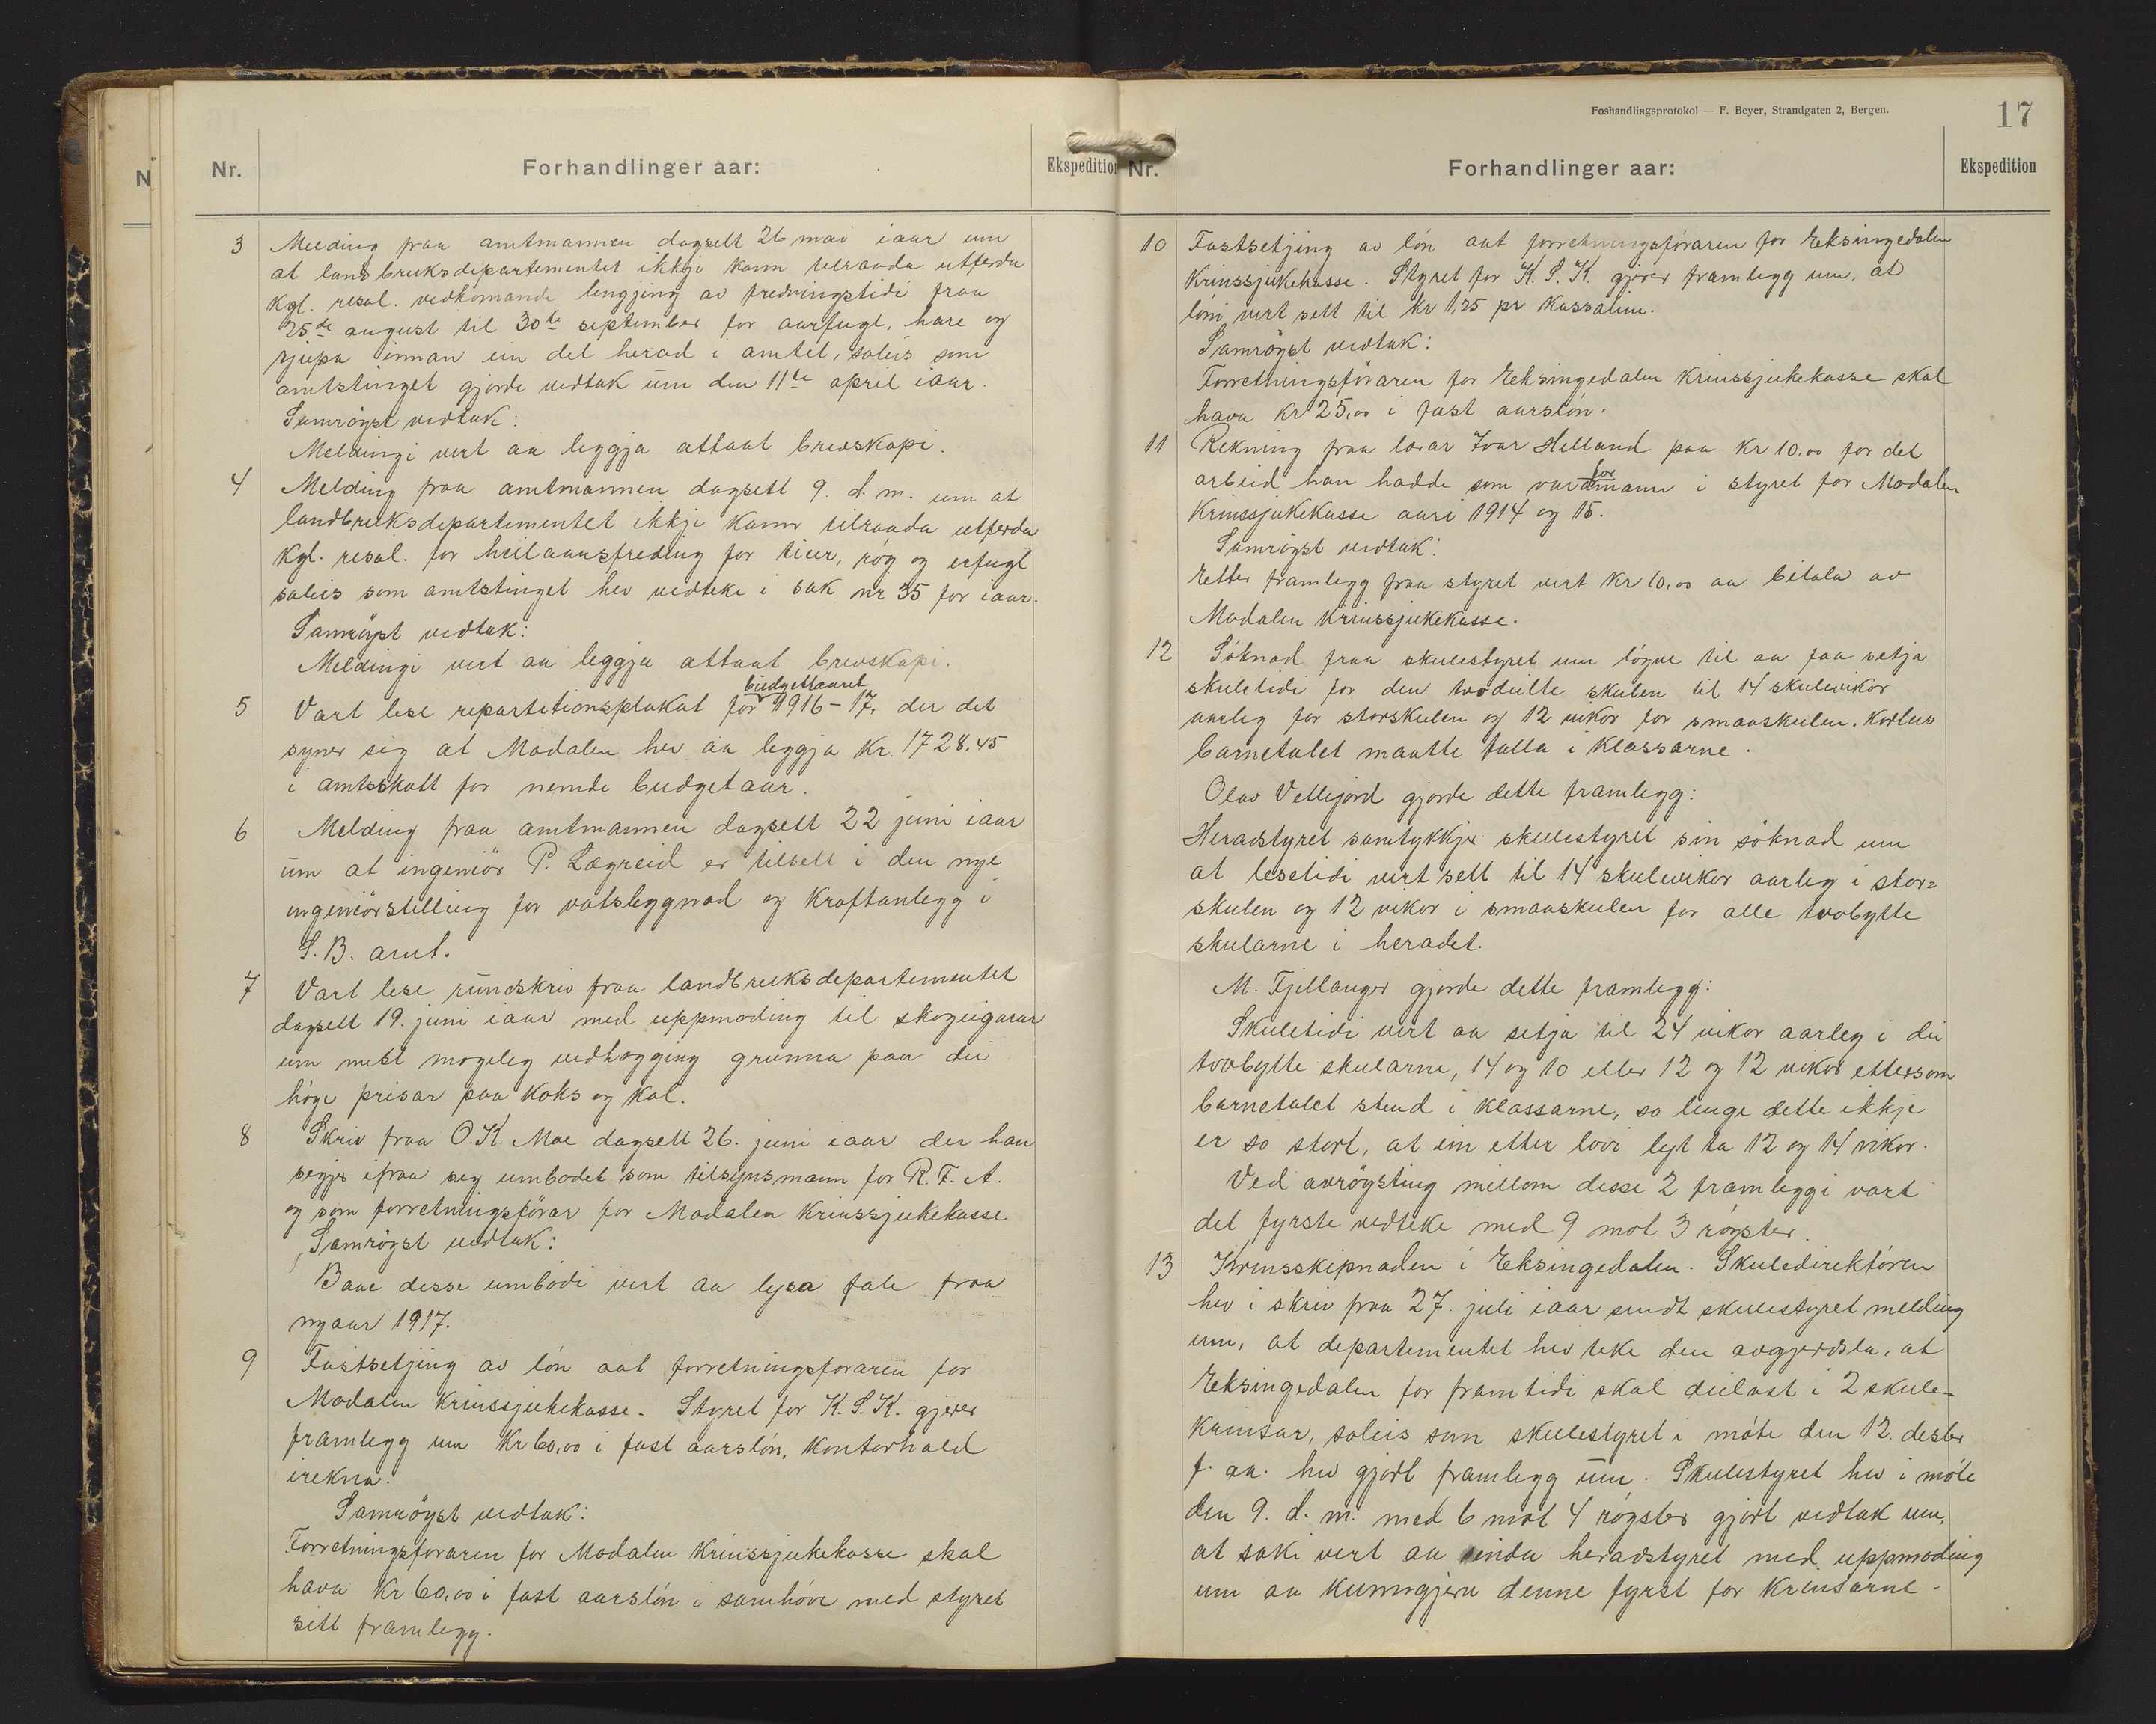 Nr. Forhandlinger aar: Ekspedition
3 Melding fraa amtmannen dagsett 26 mai iaar um
at landbruksdepartementet ikkje kann tilraada utferda
kgl. resol. vedkomande lengjing av fredningstidi fraa
25de august til 30te september for aarfugl, hare og
rjupa innan ein del herad i amtet, soleis som
amtstinget gjorde vedtak um den 11te april iaar.
Samröyst vedtak:
Meldingi vert aa leggja attaat brevskapi.
4 Melding fraa amtmannen dagsett 9. d. m. um at
landbruksdepartementet ikkje kann tilraada utferda
kgl. resol. for heilaarsfreding for tiur, röy og orfugl
soleis som amtstinget hev vedteke i sak nr 35 for iaar.
Samröyst vedtak:
Meldingi vert aa leggja attaat brevskapi.
budgettaaret
5 Vart lese repartitionsplakat for 1916-17, der det
syner seg at Modalen hev aa leggja kr. 1728,45
i amtsskatt for nemde budgetaar.
6 Melding fraa amtmannen dagsett 22 juni iaar
um at ingeniör P. Lægreid er tilsett i den nye
ingeniörstilling for vatsleggnad og kraftanlegg i
S. B. amt.
7 Vart lese rundskriv fraa landbruksdepartementet
dagsett 19. juni iaar med uppmoding til skogeigarar
um mest mogeleg vedhogging grunna paa dei
høge prisar paa koks og kol.
8 Skriv fraa O. K. Moe dagsett 26. juni iaar der han
segjer ifraa seg umbodet som tilsynsmann for R. F. A.
og som forretningsförar for Modalen krinssjukekasse
Samröyst vedtak:
Baae desse umbodi vert aa lysa fale fraa
nyaar 1917.
9 Fastsetjing av lön aat forretningsforaren for
Modalen krinssjukekasse. Styret for K. S. K. gjerer
framlegg um kr 60,00 i fast aarslön, kontorhald
irekna.
Samröyst vedtak:
Forretningsforaren for Modalen krinssjukekasse skal
hava kr 60,00 i fast aarslön i samhöve med styret
sitt framlegg.
Foshandlingsprotokol — F. Beyer, Strandgaten 2, Bergen.
17
Nr. Forhandlinger aar: Ekspedition
10 Fastsetjing av lón aat forretningsföraren for Eksingedalen
krinssjukekasse. Styret for K. S. K. gjerer framlegg um, at
lóni vert sett til kr 1,25 pr kassalim.
Samröyst vedtak:
Forretningsföraren for Eksingedalen krinssjukekasse skal
hava kr 25,00 i fast aarslón.
11 Rekning fraa lærar Ivar Helland paa kr 10,00 for det
arbeid han hadde som varaformann i styret for Modalen
krinssjukekasse aari 1914 og 15.
Samröyst vedtak:
Etter framlegg fraa styret vert kr 10,00 aa betala av
Modalen krinssjukekasse.
12 Söknad fraa skulestyret um löyve til aa faa setja
skuletidi for den tvodeilte skulen til 14 skulevikor
aarleg for storskulen og 12 vikor for smaaskulen, korleis
barnetalet maatte falla i klassarne.
Olav Vetlejord gjorde dette framlegg:
Heradstyret samtykkjer skulestyret sin söknad um
at lesetidi vert sett til 14 skulevikor aarleg i stor=
skulen og 12 vikor i smaaskulen for alle tvobytte
skularne i heradet.
M. Fjellanger gjorde dette framlegg:
Skuletidi vert aa setja til 24 vikor aarleg i dei
tvobytte skularne, 14 og 10 eller 12 og 12 vikor ettersom
barnetalet stend i klassarne, so lenge dette ikkje
er so stort, at ein etter lovi lyt ta 12 og 14 vikor.
Ved avröysting millom desse 2 framleggi vart
det fyrste vedteke med 9 mot 3 röyster.
13 Krinsskipnaden i Eksingedalen. Skuledirektören
hev i skriv fraa 27. juli iaar sendt skulestyret melding
um, at departementet hev teke den avgjerdsla, at
Eksingedalen for framtidi skal deilast i 2 skule-
krinsar, soleis som skulestyret i möte den 12. desbr
f. aa. hev gjort framlegg um. Skulestyret hev i möte
den 9. d. m. med 6 mot 4 röyster gjort vedtak um,
at saki vert aa senda heradstyret med uppmoding
um aa kunngjera denne fyrst for krinsarne.